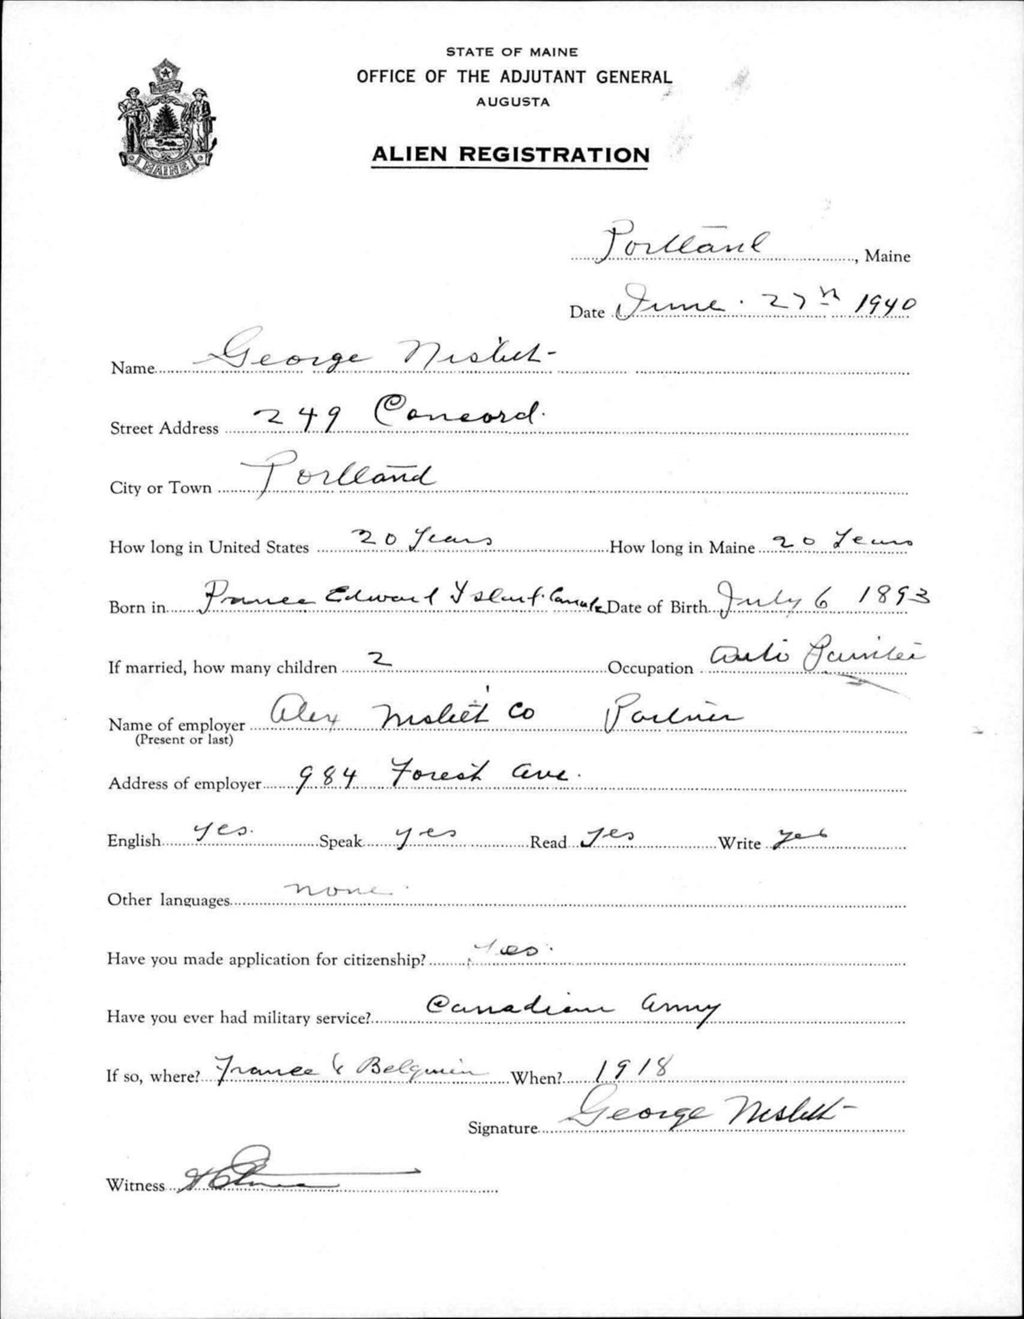 STATE OF MAINE
OFFICE OF THE ADJUTANT GENERAL
AUGUSTA
ALIEN REGISTRATION
MAINE
Portland, Maine
Date June 27th 1940
Name George Nisbett
Street Address 249 Concord.
City or Town Portland
How long in United States 20 Years How long in Maine 20 Years
Born in Prince Edward Island Canada Date of Birth July 6 1893
If married, how many children 2 Occupation Auto Painter
Name of employer Alex Nisbett Co Partner
(Present or last)
Address of employer 984 Forest Ave.
English yes. Speak yes Read Yes Write yes
Other languages none.
Have you made application for citizenship? Yes.
Have you ever had military service? Canadian Army
If so, where? France & Belguim When? 1918
Signature George Nisbett
Witness